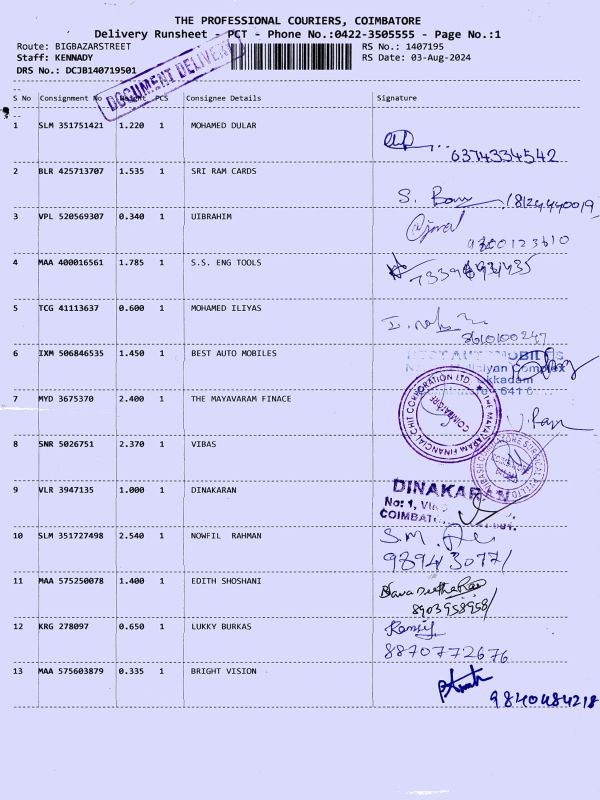 THE PROFESSIONAL COURIERS, COIMBATORE
Delivery Runsheet - PCT - Phone No.:0422-3505555 - Page No.:1
Route: BIGBAZARSTREET RS No.: 1407195
Staff: KENNADY RS Date: 03-Aug-2024
DRS No.: DCJB140719501
DOCUMENT DELIVERY
S No Consignment No Weight PCS Consignee Details Signature
1 SLM 351751421 1.220 1 MOHAMED DULAR
6374334542
2 BLR 425713707 1.535 1 SRI RAM CARDS
S.
3 VPL 520569307 0.340 1 UIBRAHIM
9300123610
4 MAA 400016561 1.785 1 S.S. ENG TOOLS
5 TCG 41113637 0.600 1 MOHAMED ILIYAS
8610100247
6 IXM 506846535 1.450 1 BEST AUTO MOBILES
BEST AUT MOBILES
Complex
kkadam
641 0
7 MYD 3675370 2.400 1 THE MAYAVARAM FINACE
THE MAYAVARAM FINANCIAL CHIT CORPORATION LTD.
COIMBATORE
8 SNR 5026751 2.370 1 VIBAS
9 VLR 3947135 1.000 1 DINAKARAN
DINAKARAN
No: 1,
COIMBAT
10 SLM 351727498 2.540 1 NOWFIL RAHMAN
S.M.
9894343077
11 MAA 575250078 1.400 1 EDITH SHOSHANI
8903958958
12 KRG 278097 0.650 1 LUKKY BURKAS
8870772676
13 MAA 575603879 0.335 1 BRIGHT VISION
9840484218